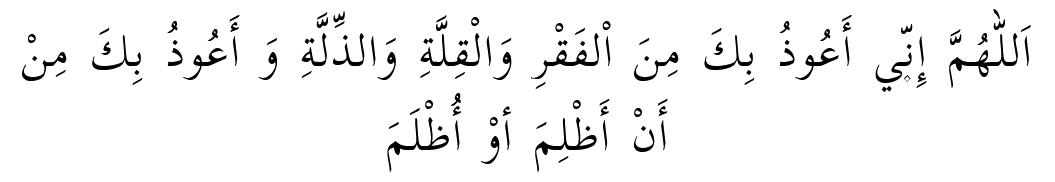 اَللّٰهُمَّ إِنِّي أَعُوذُ بِكَ مِنَ اْلفَقْرِ وَالْقِلَّةِ وَالذِّلَّةِ وَ أَعُوذُ بِكَ مِنْ
أَنْ أَظْلِمَ أوْ أُظْلَمَ